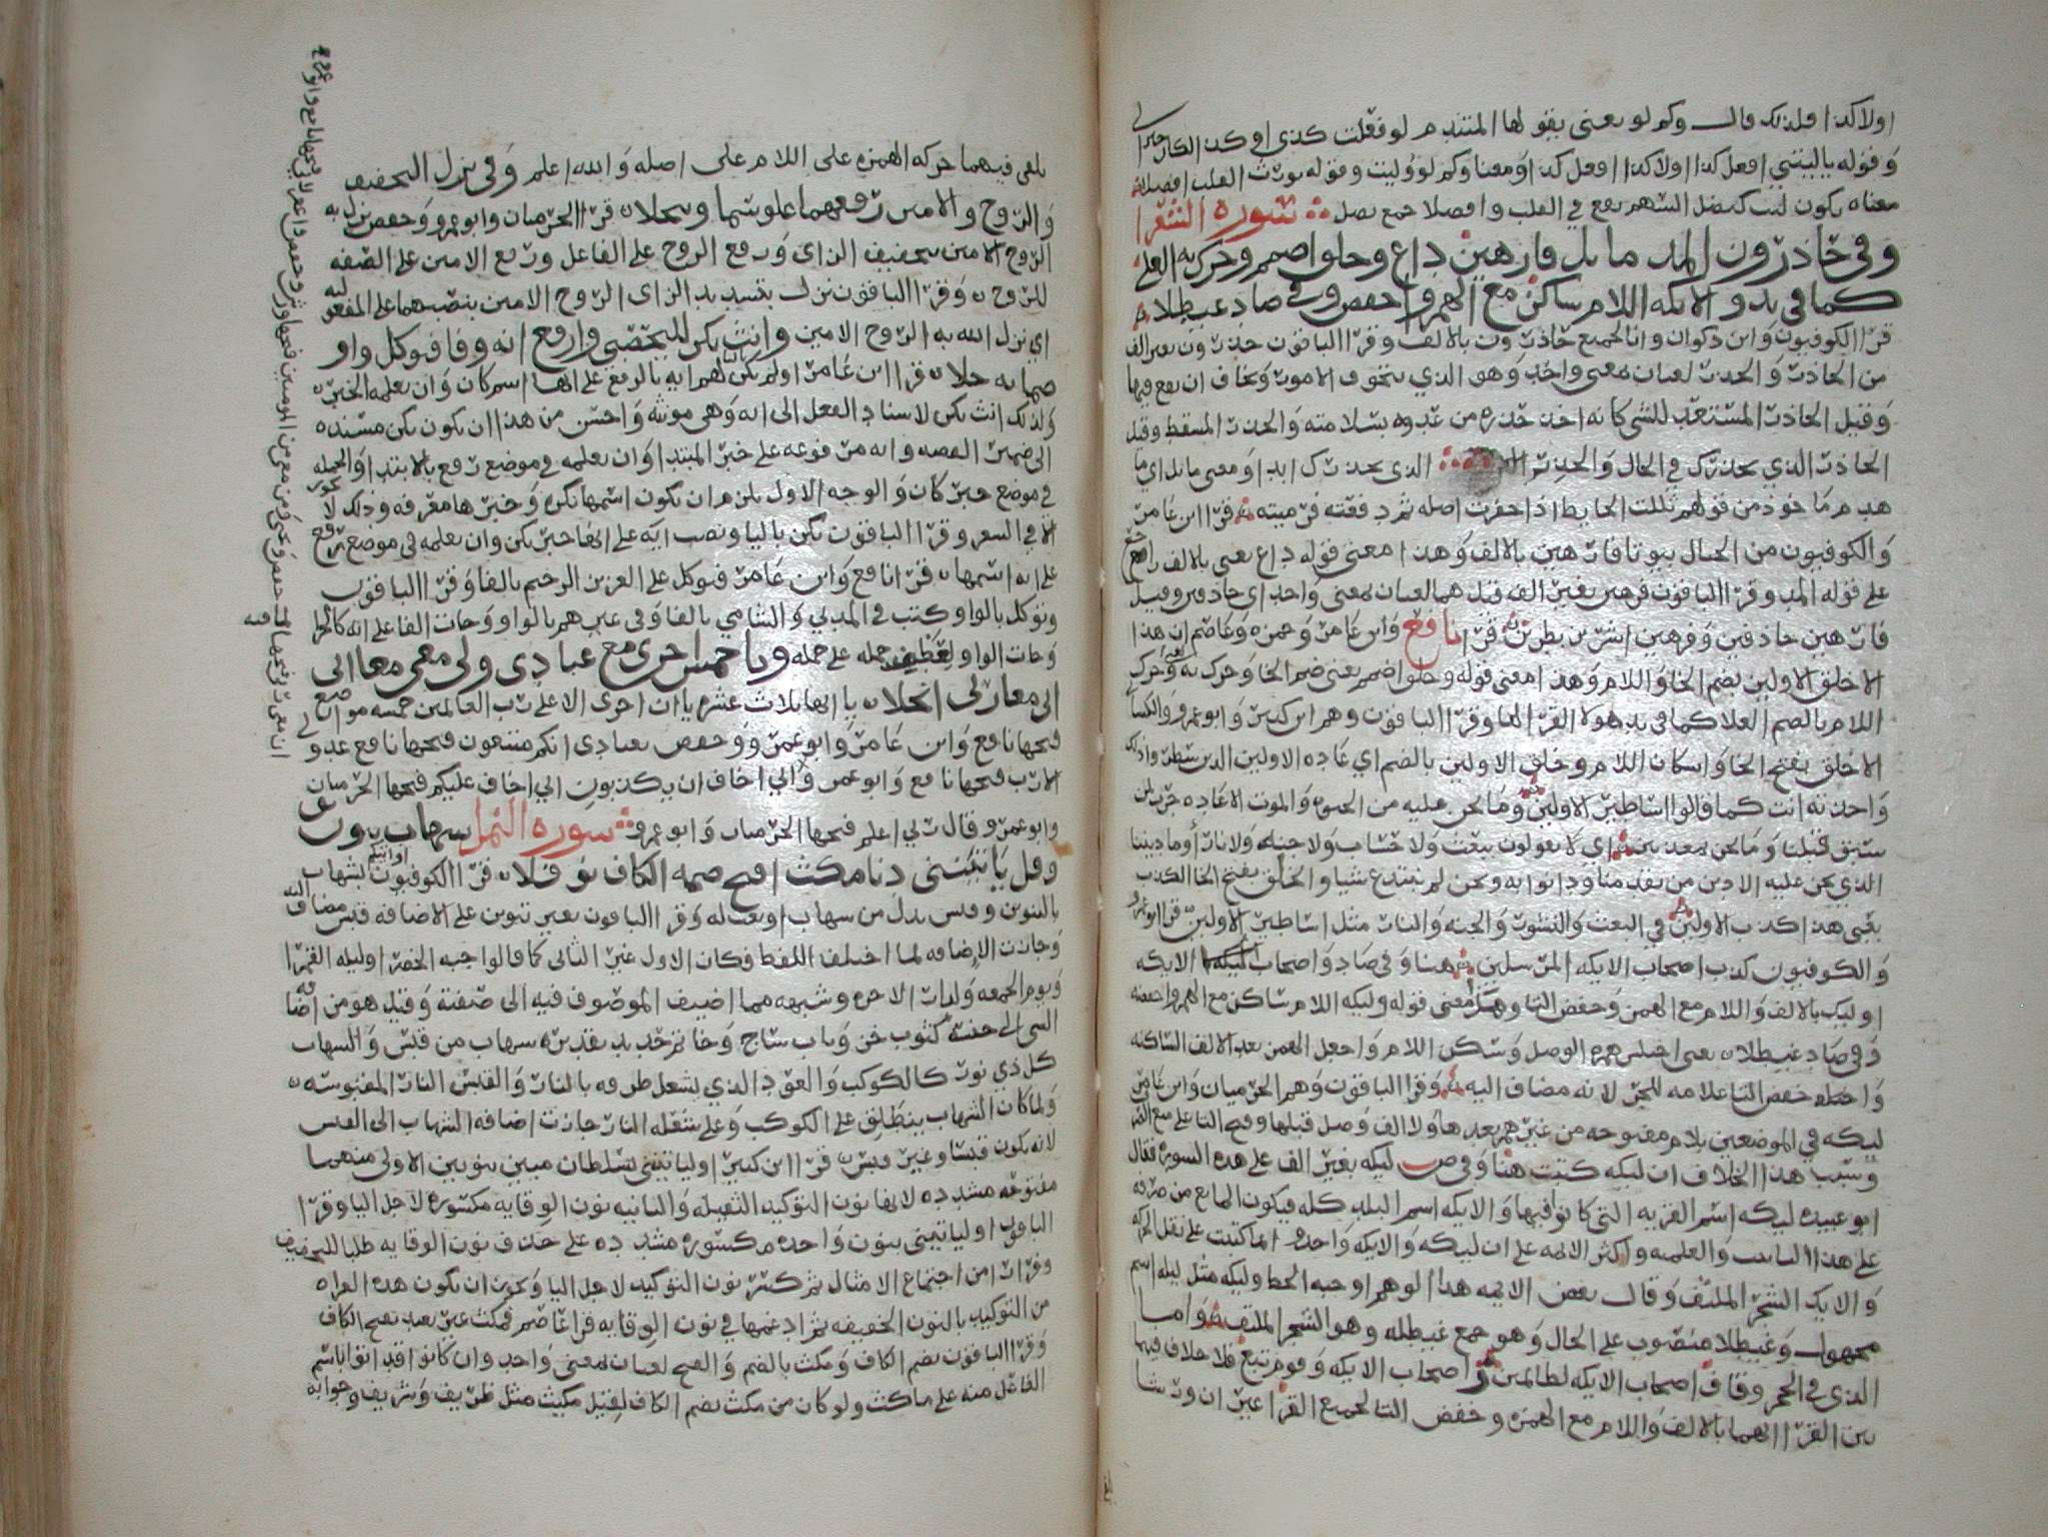 اولا كذا فلذلك قال وكم لو يعنى يقولها المتندم لو فعلت كذى او كذا لكان خيرا لى
وقوله ياليتني افعل كذا اولا كذا افعل كذا ومعنا وكم لو وليت وقوله تورث القلب افصلا
معناه يكون ليت كنصل السهم يقع في القلب وافصلا جمع نصل سورة الشعرا
وفى حاذرون المد ما ثل فارهين ذاع وخلق اضمم وحرك به العلى
كما في ند والايكه اللام ساكن مع الهمز واخفض وفي صاد غيطلا
قرا الكوفيون وابن ذكوان وانا لجميع حاذرون بالالف وقرا الباقون حذرون بغير الف
من الحاذر والحذر لغتان بمعنى واحد وهو الذي يتخوف الامور ويخاف ان يقع فيها
وقيل الحاذر المستعد للشي كانه اخذ حذره من عدوه بسلامته والحذر المتيقظ وقيل
الحاذر الذي يحذرك في الحال والحذر الذى يحذرك ابدا ومعنى ما ثل اي ما
هدم ماخوذ من قولهم ثللت الحايط اذا حفرت اصله ثم دفعته فرميته قرا ابن عامر
والكوفيون من الجبال بيوتا فارهين بالالف وهذا معنى قوله ذاع يعنى بالالف راجع
على قوله المد وقرا الباقون فرهين بغير الف قيل هما لغتان بمعنى واحد اى حاذقين وقيل
فارهين حاذقين وفرهين اشرين بطرين قرا نافع وابن عامر وحمزه وعاصم ان هذا
الا خلق الاولين بضم الخا واللام وهذا معنى قوله وخلق اضمم يعنى ضم الخا وحرك به وحرك
اللام بالضم العلا كما في ند هولا القرا لها وقرا الباقون وهم ابن كثير وابو عمرو والكساي
الا خلق بفتح الخا واسكان اللام وخلق الاولين بالضم اي عاده الاولين الذين سطروا ذلك
واحدثته انت كما قالوا اساطير الاولين وما نحن عليه من الحيوه والموت الا عاده جرت لمن
سبق قبلنا وما نحن بمعذبين اي لا يقولون ببعث ولا حساب ولا جنه ولا نار او ما ديننا
الذي نحن عليه الا دين من تقدمنا ودانوا به ونحن لم نبتدع شيا والخلق بفتح الخا الكذب
يعنى هذا كذب الاولين في البعث والنشور والجنه والنار مثل اساطير الاولين قرا ابو عمرو
والكوفيون كذب اصحاب الايكه المرسلين هنا وفى صاد واصحاب الايكه
اوليك بالالف واللام مع الهمز وخفض التا وهذا معنى قوله وليكه اللام ساكن مع الهمز واخفضه
وفى صاد غيطلا يعنى اجلب همزه الوصل وسكن اللام واجعل الهمز بعد الالف الساكنه
خفض التا علامه للجر لانه مضاف اليه وقرا الباقون وهم الحرميان وابن عامر
ليكه في الموضعين بلام مفتوحه من غير همز بعدها ولا الف وصل قبلها وفتح التا
وسبب هذا الخلاف ان ليكه كتبت هنا وفي ص ليكه بغير الف على هذه السوره فقال
ابو عبيده ليكه اسم القريه التى كانوا فيها والايكه اسم البلد كله فيكون المانع من صرفه
على هذا التانيث والعلميه واكثر الايمه على ان ليكه والايكه واحده انما كتبت على نقل الحركه
والايك الشجر الملتف وقال بعض الايمه هذا لوهم اوجبه الخط وليكه مثل ليله اسم
مجهول وغيطلا منصوب على الحال وهو جمع غيطله وهو الشجر الملتف واما
الذى في الحجر وقاف اصحاب الايكه لظالمين واصحاب الايكه وقوم تبع فلا خلاف فيها
بين القرا انهما بالالف واللام مع الهمزه وخفض التا لجميع القرا غير ان ورشا
يلقى فيهما حركه الهمزه على اللام على اصله والله اعلم وفى نزل التخفيف
والروح والامين رفعهما علو سما وبجلا قرا الحرميان وابو عمرو وحفص نزل به
الروح الامين بتخفيف الزاى ورفع الروح على الفاعل ورفع الامين على الصفه
للروح وقرا الباقون نزل بتشديد الزاى الروح الامين بنصبهما على المفعوليه
اي نزل الله به الروح الامين وانث يكن لليحصبى وارفع اية وفا فتوكل واو
ضمانه حلا قرا ابن عامر اولم تكن لهم ايه بالرفع على انها اسم كان وان يعلمه الخبر
ولذلك انث يكن لاسناد الفعل الى ايه وهى مونثه واحسن من هذا ان يكون يكن مسنده
الى ضمير القصه وايه مرفوعه على خبر المبتدا وان يعلمه فى موضع رفع بالابتدا والجمله
في موضع خبر كان والوجه الاول يلزم ان يكون اسمها نكره وخبرها معرفه وذلك لا يجوز
الا في الشعر وقرا الباقون يكن باليا ونصب ايه على انها خبر يكن وان يعلمه فى موضع رفع
على انه اسمها قرا نافع وابن عامر فتوكل على العزيز الرحيم بالفا وقرا الباقون
وتوكل بالواو وكتب في المدني والشامي بالفا وفى غيرهم بالواو وجات الفا على انه كالجزا
وجات الواو لعطف جمله على جمله ويا خمس اجرى مع عبادى ولى معى معا ابى
انى معا ربى انجلا ياانها ثلاث عشره يا ان اجرى الا على رب العالمين خمسه مواضع
فتحها نافع وابن عامر وابو عمر وحفص بعبادى انكم متبعون فتحها نافع عدو لي
الا رب فتحها نافع وابو عمر واني اخاف ان يكذبون اني اخاف عليكم فتحها الحرميان
وابو عمر وقال ربي اعلم فتحها الحرميان وابو عمرو سورة النمل شهاب بنون ثق
وقل ياتينني دنا مكث افتح ضمه الكاف نوفلا قرا الكوفيون او اتيكم بشهاب
بالتنوين وقبس بدل من شهاب او نعت له وقرا الباقون بغير تنوين على الاضافه قبس مضاف اليه
وجازت الاضافه لما اختلف اللفظ فكان الاول غير الثانى كما قالوا حبه الخضرا وليله القمرا
ويوم الجمعه ولدار الاخره وشبهه مما اضيف الموصوف فيه الى صفته وقيل هو من اضافه
الشى الى جنسه كثوب خز وباب ساج وخاتم حديد تقديره شهاب من قبس والشهاب
كل ذي نور كالكوكب والعود الذي يشعل طرفه بالنار والقبس النار المقبوسه
ولما كان الشهاب ينطلق على الكوكب وعلى شعله النار جازت اضافه الشهاب الى القبس
لانه يكون قبسا وغير قبس قرا ابن كثير اوليا تينني بسلطان مبين بنونين الاولى منهما
مفتوحه مشدده لانها نون التوكيد الثقيله والثانيه نون الوقايه مكسوره لاجل اليا وقرا
الباقون اوليا تيني بنون واحده مكسوره مشدده على حذف نون الوقايه طلبا للتخفيف
وفرارا من اجتماع الامثال ثم كسر نون التوكيد لاجل اليا ويجوز ان يكون هذه القراه
من التوكيد بالنون الخفيفه ثم ادغمها في نون الوقايه قرا عاصم فمكث غير بعيد بفتح الكاف
وقرا الباقون بضم الكاف ومكث بالضم والفتح لغتان بمعنى واحد وان كانوا قد اتوا باسم
الفاعل منه على ماكث ولو كان من مكث بضم الكاف لقيل مكيث مثل ظريف وشريف وجوابه